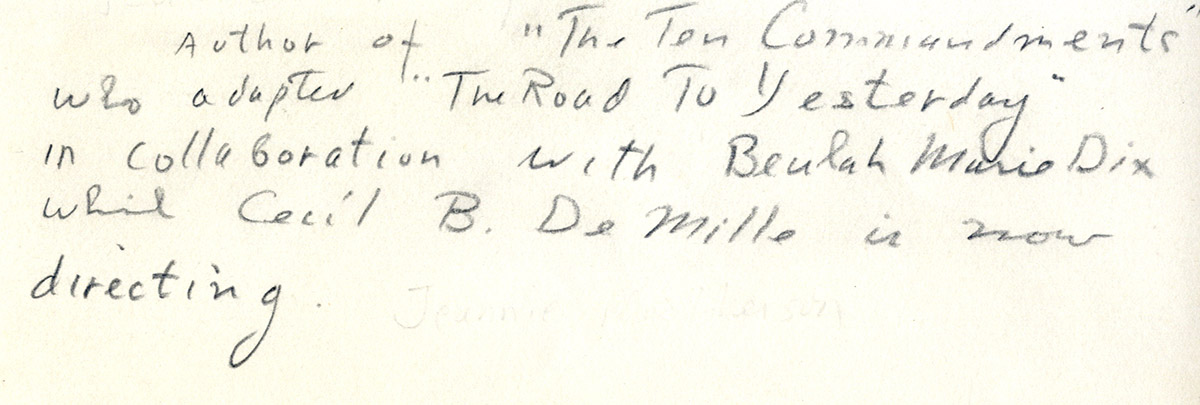 Author of "The Ten Commandments"
who adapted "The Road To Yesterday"
in collaboration with Beulah Marie Dix
which Cecil B. De Mille is now
directing.
Jeannie